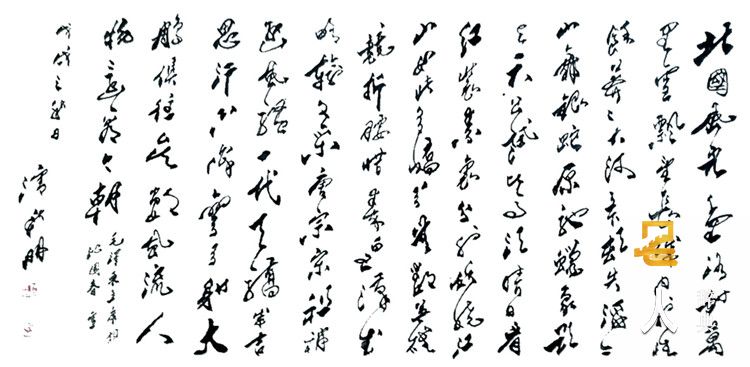 北國風光千里冰封萬
里雪飄望長城内外惟
餘莽莽大河上下頓失滔滔
山舞銀蛇原馳蠟象欲
与天公試比高須晴日看
红裝素裹分外妖嬈江
山如此多嬌引無數英雄
競折腰惜秦皇漢武
略輸文采唐宗宋祖稍
遜風騷一代天驕成吉
思汗只識彎弓射大
鵰俱往矣數風流人
物還看今朝
毛澤東主席詞
沁園春雪
戊戌之秋日
明